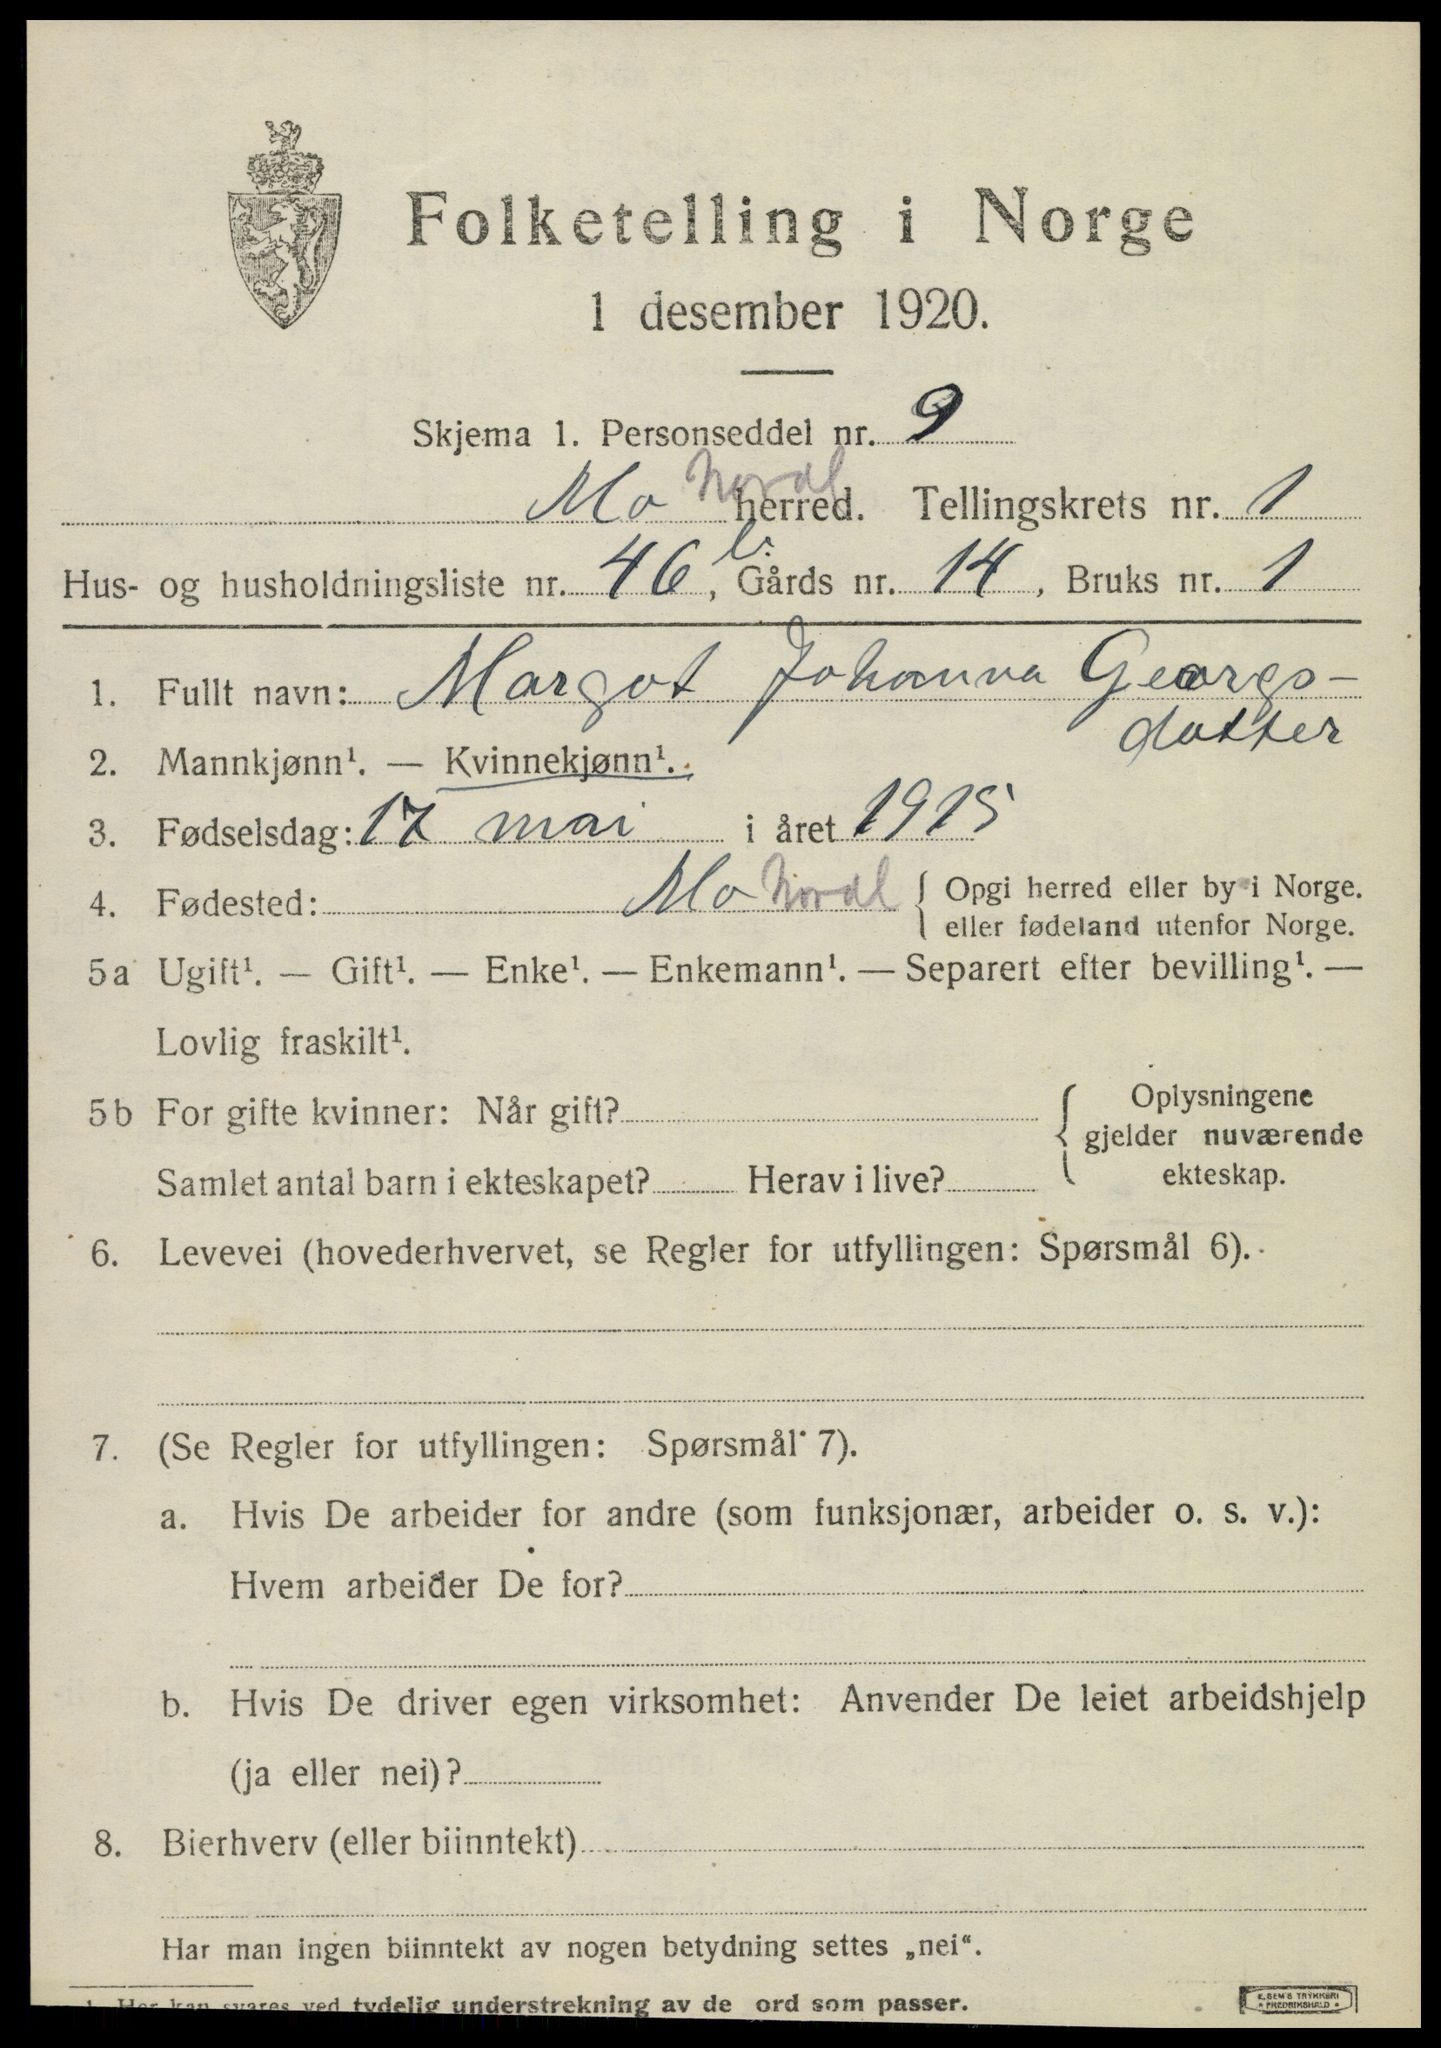 Folketelling i Norge
1 desember 1920.
Skjema 1. Personseddel nr. 9
Mo Nordl herred. Tellingskrets nr. 1
Hus- og husholdningsliste nr. 46 b., Gårds nr. 14, Bruks nr. 1
1. Fullt navn: Margot Johanna Georgs-
datter
2. Mannkjønn¹. — Kvinnekjønn¹.
3. Fødselsdag: 17 mai i året 1915
4. Fødested: Mo Nordl { Opgi herred eller by i Norge.
eller fødeland utenfor Norge.
5a Ugift¹. — Gift¹. — Enke¹. — Enkemann¹. — Separert efter bevilling¹. —
Lovlig fraskilt¹.
5b For gifte kvinner: Når gift? { Oplysningene
gjelder nuværende
Samlet antal barn i ekteskapet? Herav i live? ekteskap.
6. Levevei (hovederhvervet, se Regler for utfyllingen: Spørsmål 6).
7. (Se Regler for utfyllingen: Spørsmål 7).
a. Hvis De arbeider for andre (som funksjonær, arbeider o. s. v.):
Hvem arbeider De for?
b. Hvis De driver egen virksomhet: Anvender De leiet arbeidshjelp
(ja eller nei)?
8. Bierhverv (eller biinntekt)
Har man ingen biinntekt av nogen betydning settes „nei“.
1 Her kan svares ved tydelig understrekning av de ord som passer.
E. SEM'S TRYKKERI
FREDRIKSHALD